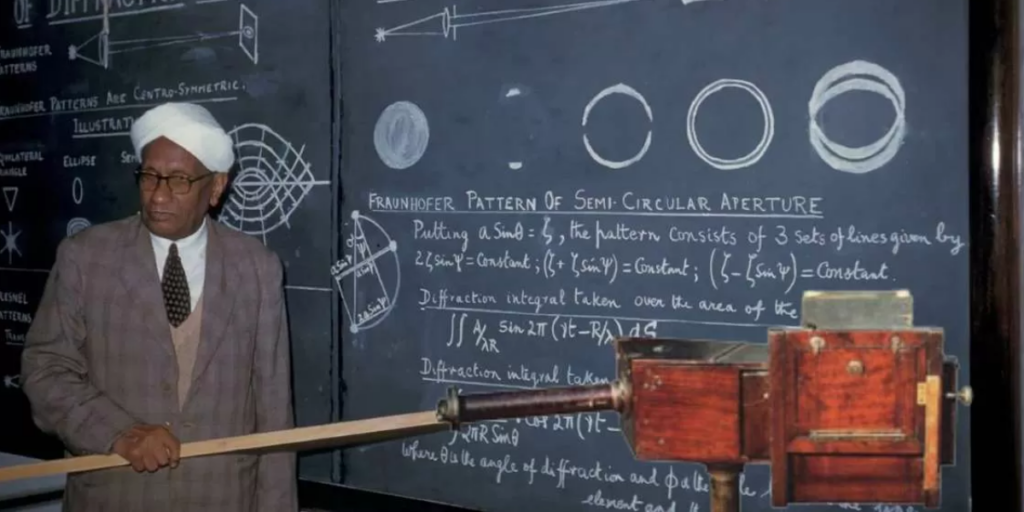 OF DIFFRACTION
FRAUNHOFER
PATTERNS
FRAUNHOFER PATTERNS ARE CENTRO-SYMMETRIC.
ILLUSTRAT
ELLIPSE
FRESNEL
PATTERNS
FRAUNHOFER PATTERN OF SEMI-CIRCULAR APERTURE
Putting a Sinθ = ζ, the pattern consists of 3 sets of lines given by
2ζ sin Ψ = Constant; (ζ + ζ sin Ψ) = Constant; (ζ - ζ sin Ψ) = Constant.
Diffraction integral taken over the area of the
∫∫ A/λR sin 2π (γt - R/λ) dS
Diffraction integral taken
2πR Sinθ cos 2π (γt -
Where θ is the angle of diffraction and φ is the
element and